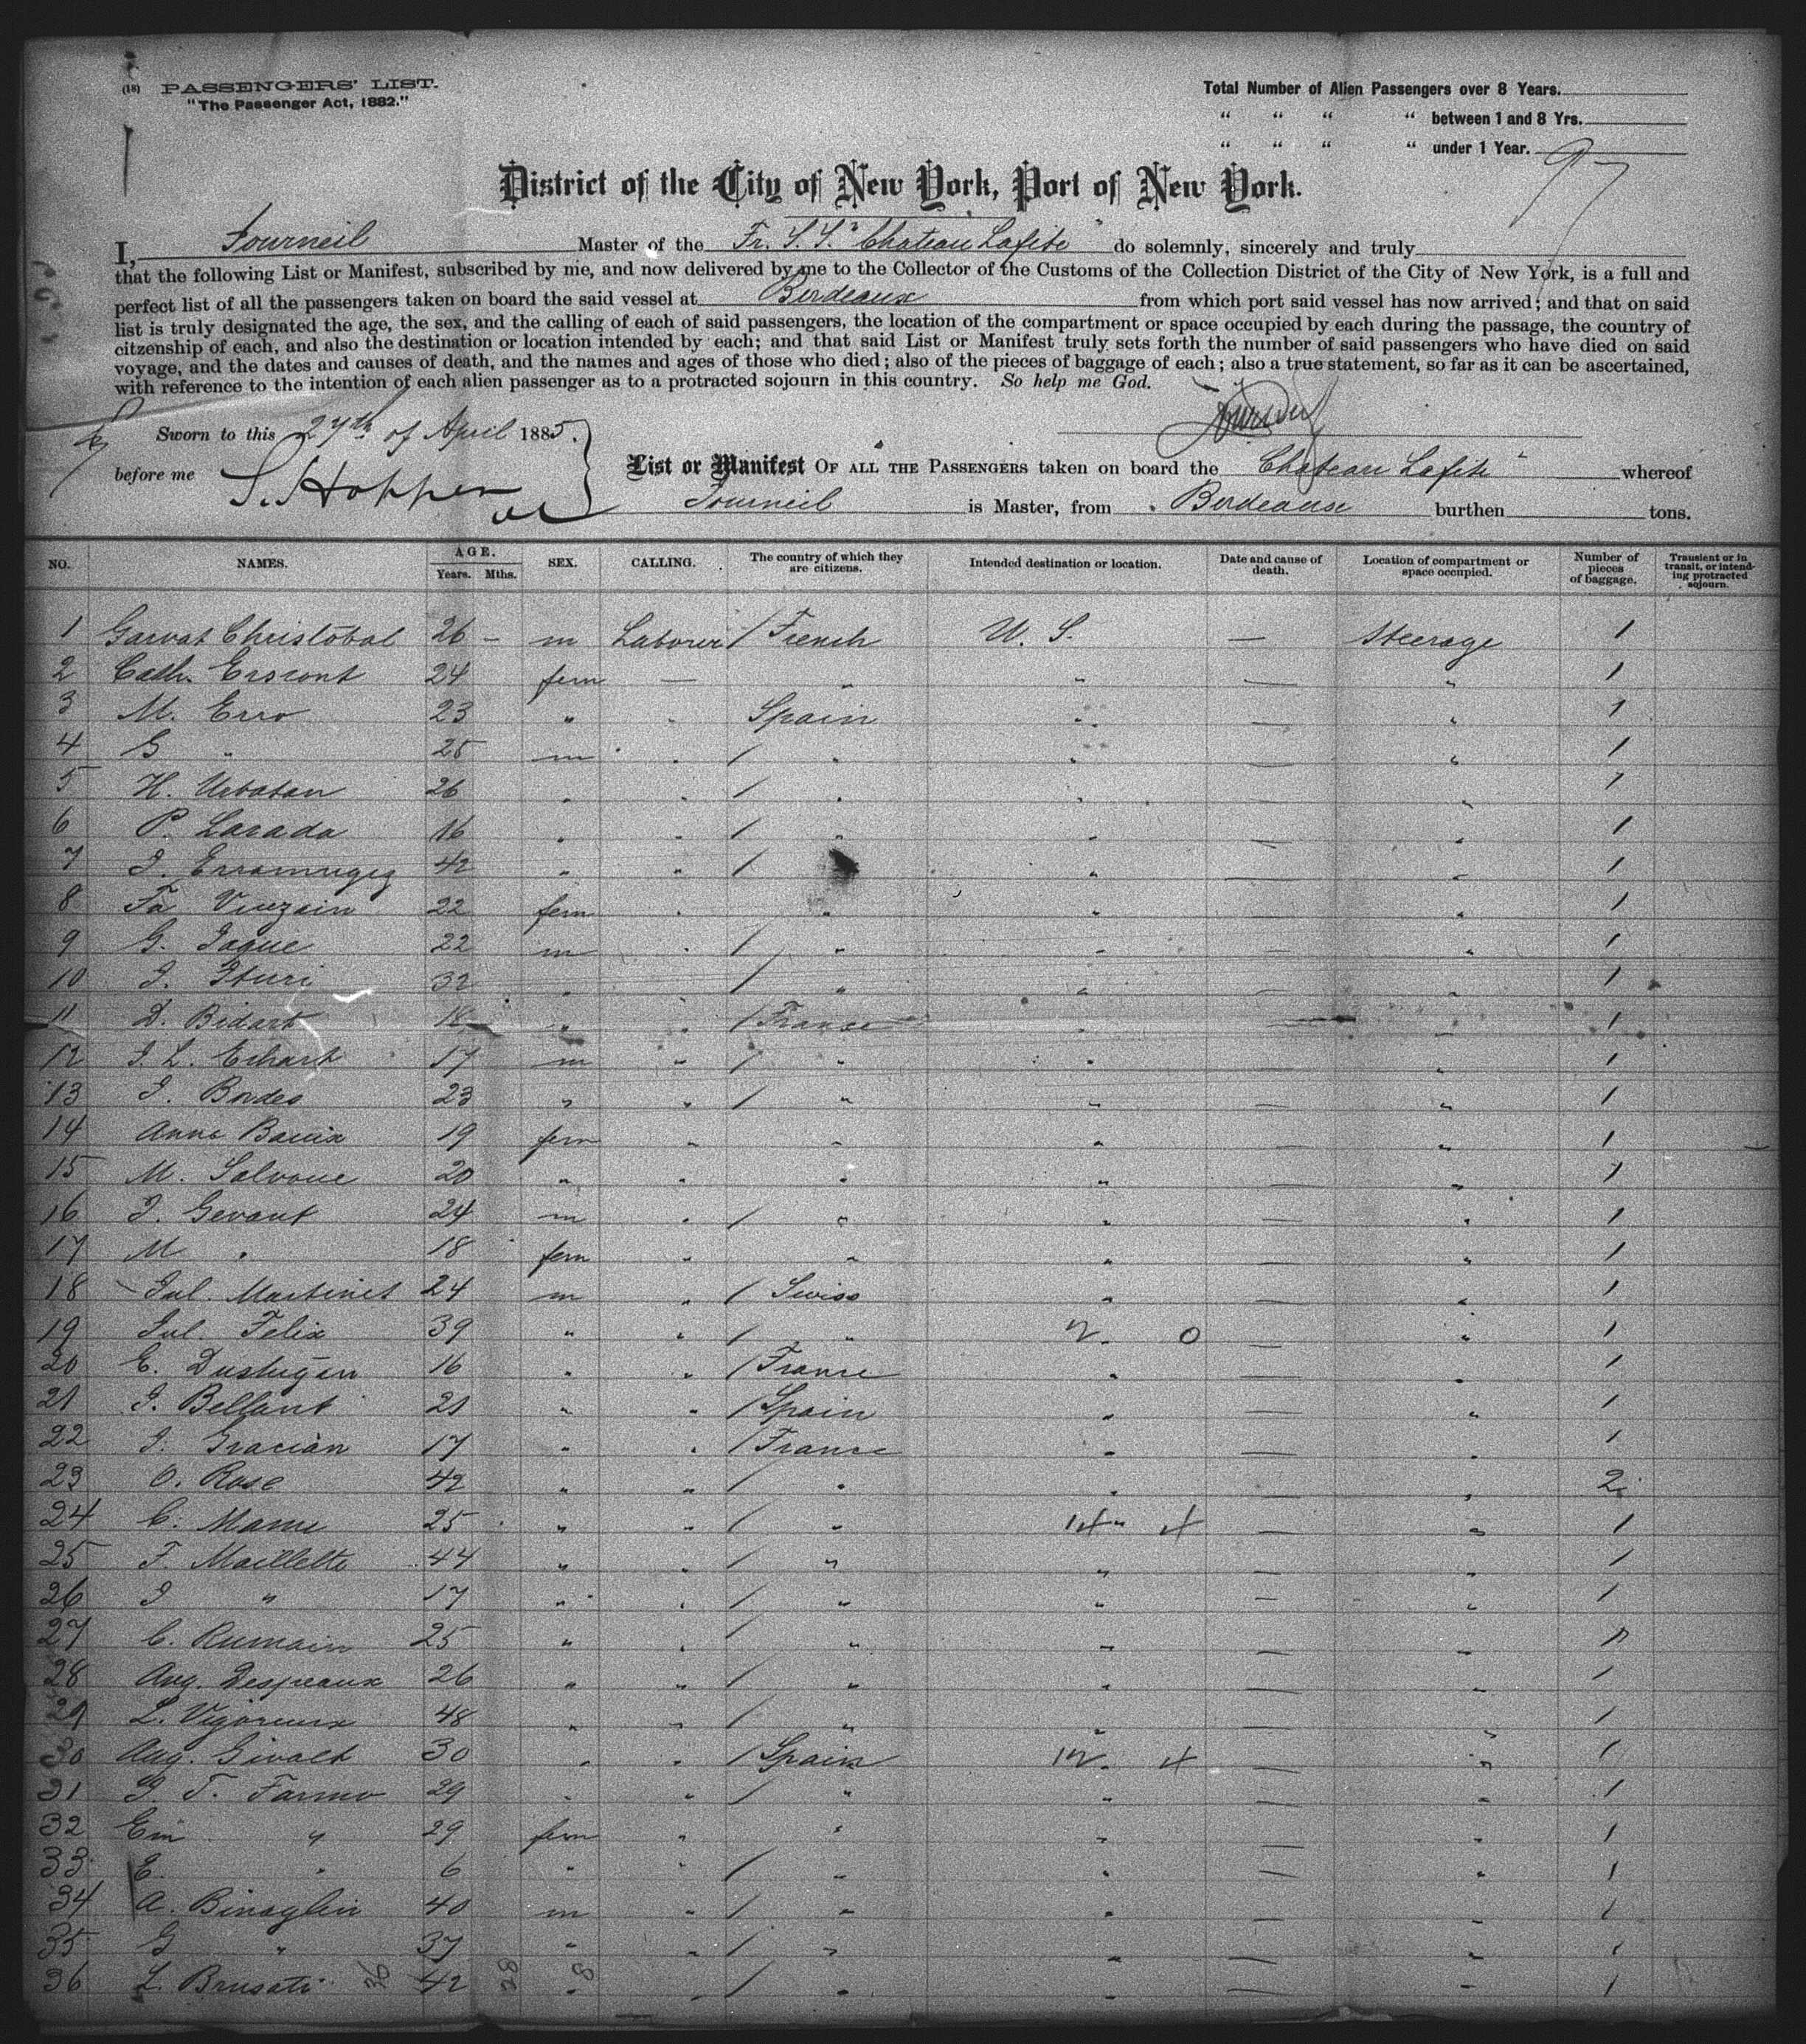 (18) PASSENGERS' LIST.
"The Passenger Act, 1882."
Total Number of Alien Passengers over 8 Years.
" " " " between 1 and 8 Yrs.
" " " " under 1 Year.
97
District of the City of New York, Port of New York.
I, Fourneil Master of the Fr. S.S. "Chateau Lafite" do solemnly, sincerely and truly
that the following List or Manifest, subscribed by me, and now delivered by me to the Collector of the Customs of the Collection District of the City of New York, is a full and
perfect list of all the passengers taken on board the said vessel at Bordeaux from which port said vessel has now arrived; and that on said
list is truly designated the age, the sex, and the calling of each of said passengers, the location of the compartment or space occupied by each during the passage, the country of
citzenship of each, and also the destination or location intended by each; and that said List or Manifest truly sets forth the number of said passengers who have died on said
voyage, and the dates and causes of death, and the names and ages of those who died; also of the pieces of baggage of each; also a true statement, so far as it can be ascertained,
with reference to the intention of each alien passenger as to a protracted sojourn in this country. So help me God.
Sworn to this 27th of April 1885.
before me S. Hopper
List or Manifest OF ALL THE PASSENGERS taken on board the "Chateau Lafite" whereof
Fourneil is Master, from Bordeaux burthen tons.
NO. NAMES. AGE. Years. Mths. SEX. CALLING. The country of which they are citizens. Intended destination or location. Date and cause of death. Location of compartment or space occupied. Number of pieces of baggage. Transient or in transit, or intending protracted sojourn.
1 Garvat Christobal 26 - m Laborer / French U. S. — Steerage 1
2 Cath. 24 fem — " " — " 1
3 M. Erro 23 " " Spain " — " 1
4 G " 25 m " / " " — " 1
5 H. Urbatan 26 " " / " " — " 1
6 P. Larada 16 " " / " " — " 1
7 42 " " / " — " 1
8 22 fem " " " — " 1
9 G. Jaque 22 m " / " " — " 1
10 J. Ituri 32 " " / " " — " 1
11 D. Bidart 18 " " / France " — " 1
12 J. L. Echart 17 m " / " " — " 1
13 J. Bordes 23 " " / " " — " 1
14 Anna 19 fem " " " — " 1
15 M. Salvoue 20 " " " " — " 1
16 J. Gevant 24 m " / " " — " 1
17 M " 18 fem " " " — " 1
18 Jul. Martinet 24 m " / Swiss " — " 1
19 Jul. Felix 39 " " / " " — " 1
20 E. 16 " " / France " — " 1
21 J. Bellant 21 " " / Spain " — " 1
22 J. Gracian 17 " " / France " — " 1
23 O. Rose 42 " " / " " — " 2
24 C. 25 " " / " " — " 1
25 F. Maillette 44 " " / " " — " 1
26 J " 17 " " / " " — " 1
27 C. Rumain 25 " " / " " — " 1
28 Aug. Despeaux 26 " " / " " — " 1
29 L. Vigoreux 48 " " / " " — " 1
30 Aug. 30 " " / Spain " — " 1
31 J. T. Farmo 29 " " / " " — " 1
32 Em " 29 fem " " " — " 1
33 E. " 6 " " / " " — " 1
34 A. Binaglin 40 m " / " " — " 1
35 G " 37 " " / " " — " 1
36 L. Brusati 36 42 " " / " " — " 1